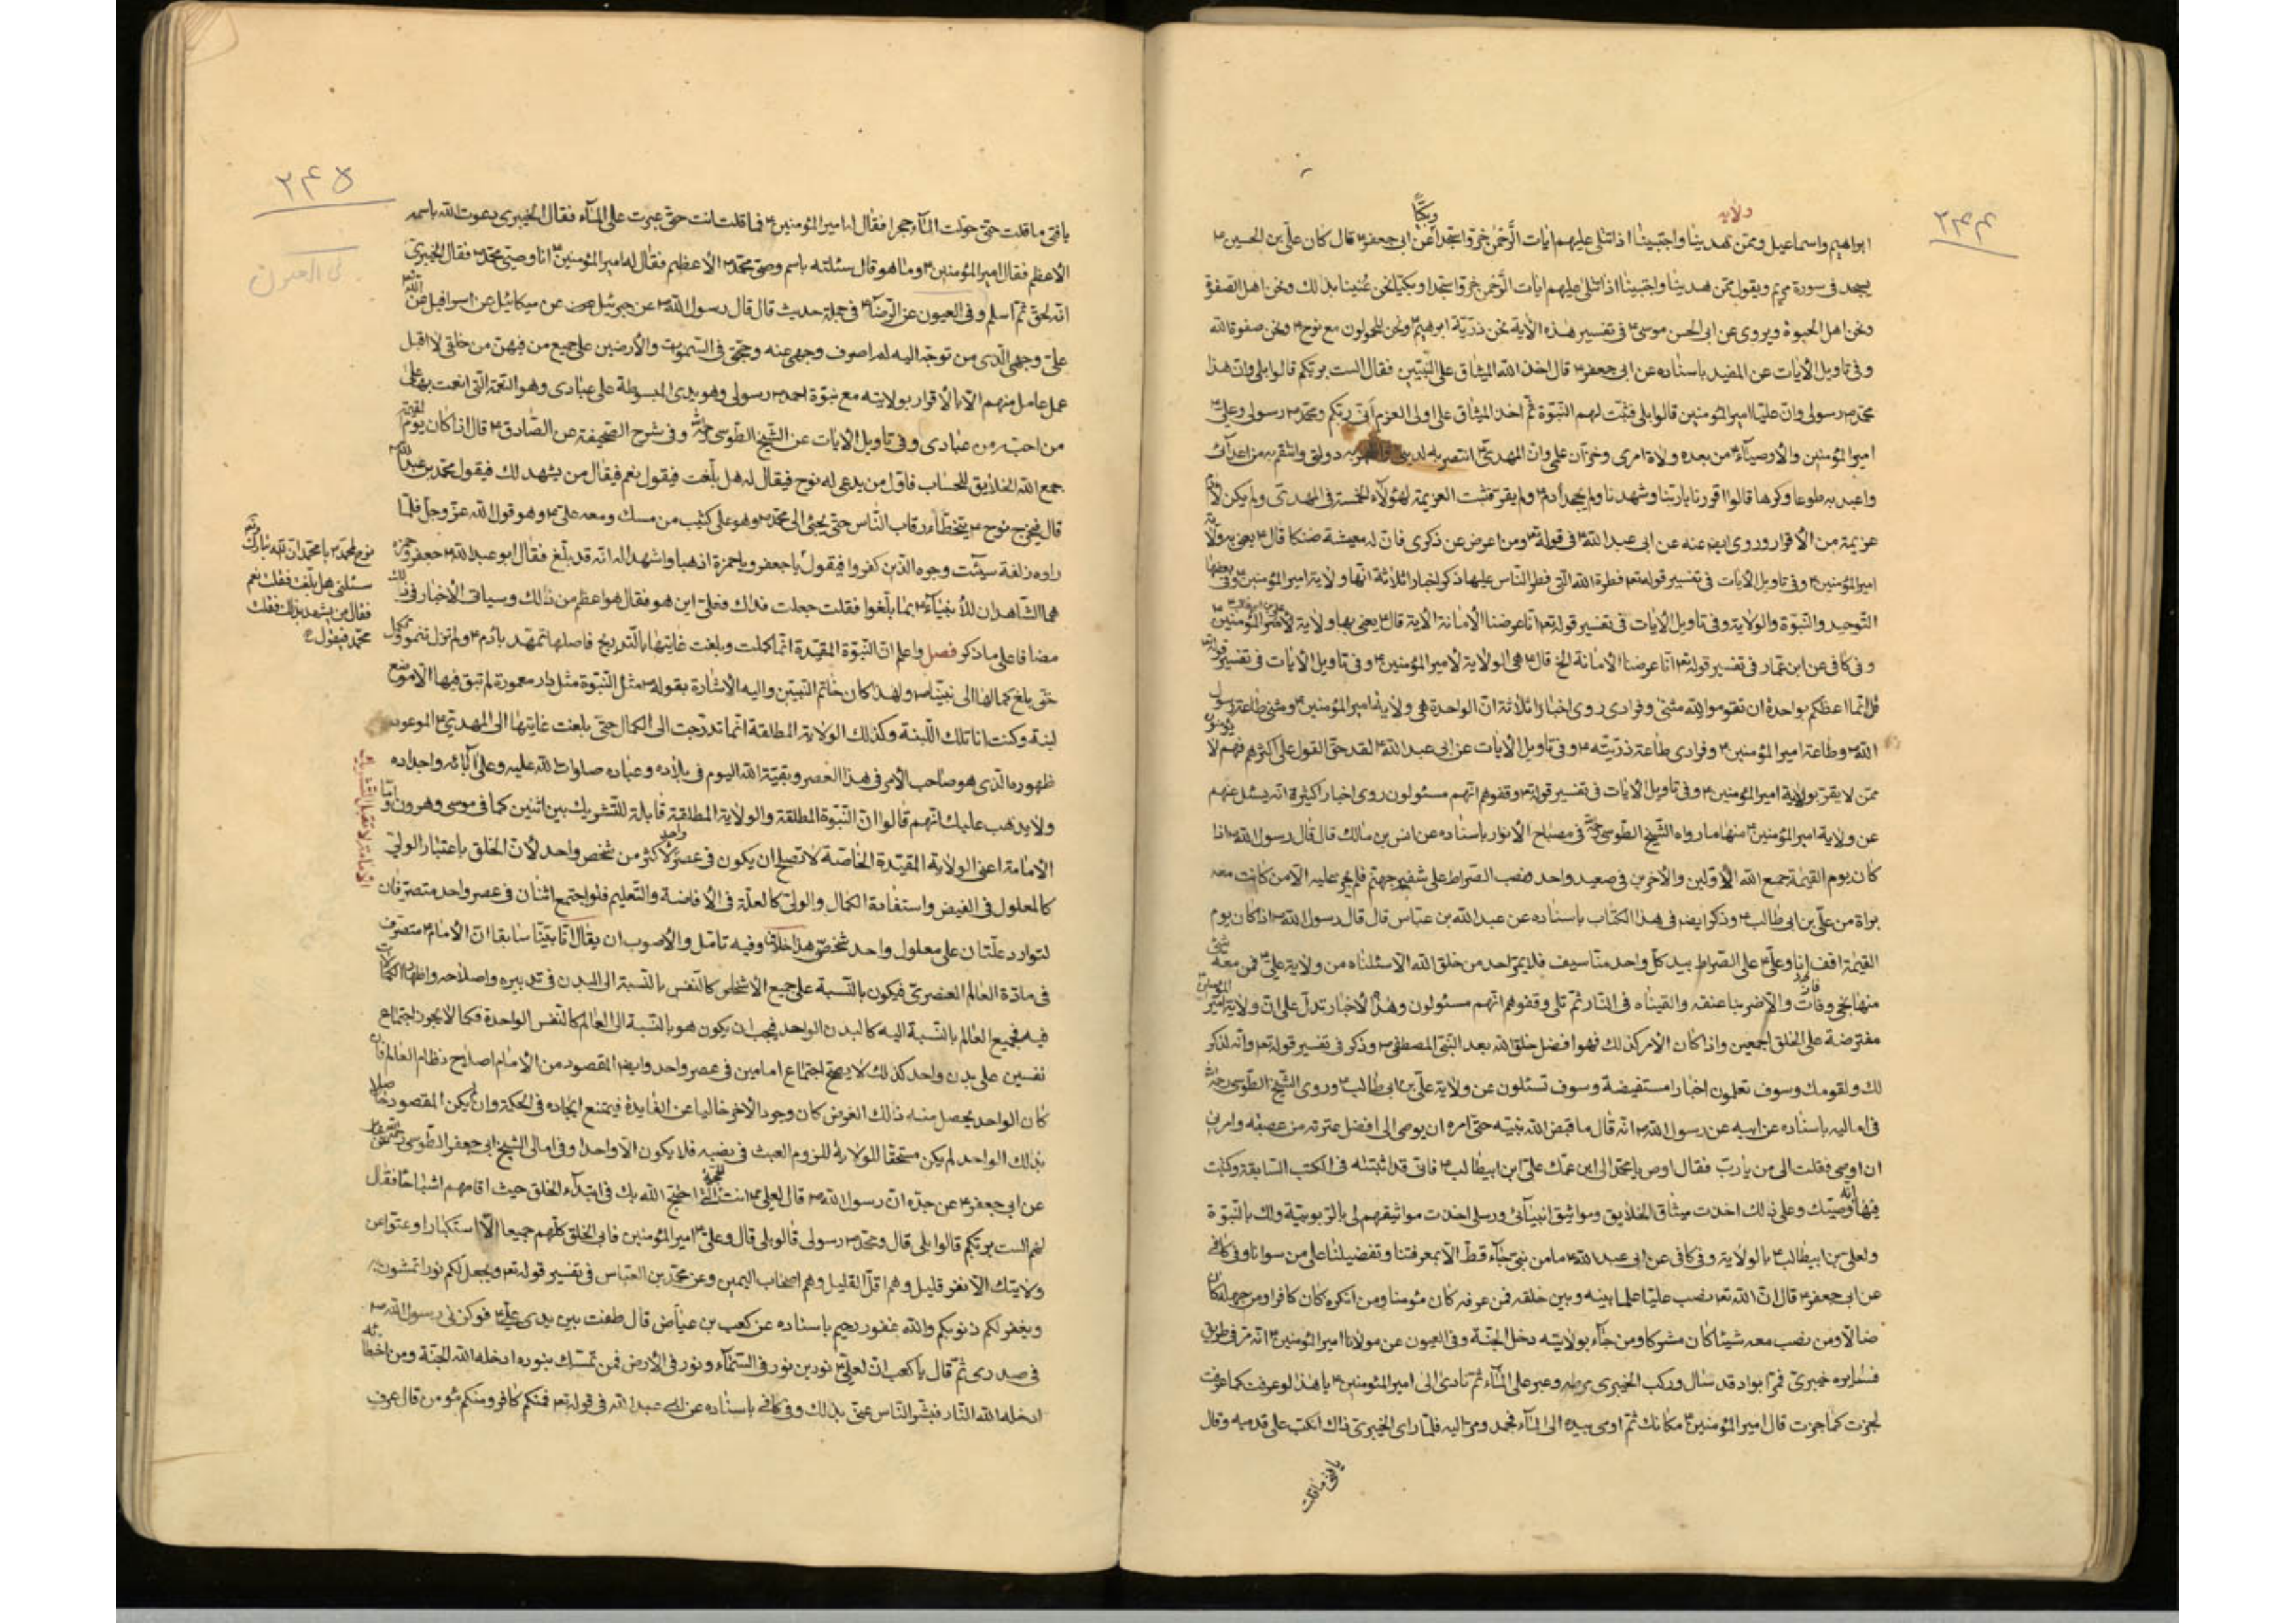 ۲۴۴
ولایه
وبکیّا
ابراهیم واسماعیل وممّن هدینا واجتبینا اذا تتلی علیهم ایات الرّحمن خرّوا سجّدا عن ابی جعفر ع قال کان علی بن الحسین ع
یسجد فی سورة مریم ویقول ممّن هدینا واجتبینا اذا تتلی علیهم ایات الرّحمن خرّوا سجّدا وبکیّا نحن عُنینا بذلک ونحن اهل الصفوة
ونحن اهل الحبوة ویروی عن ابی الحسن موسی ع فی تفسیر هذه الآیة نحن ذرّیّة ابرهیم ع ونحن المحمولون مع نوح ع ونحن صفوة الله
وفی تاویل الآیات عن المفید باسناده عن ابی جعفر ع قال اخذ الله المیثاق علی النّبیّین فقال الست بربّکم قالوا بلی وانّ هذا
محمّد ص رسولی وانّ علیّا امیر المؤمنین قالوا بلی فثبّت لهم النبّوة ثمّ اخذ المیثاق علی اولی العزم انّی ربّکم ومحمّد ص رسولی وعلی ع
امیر المؤمنین والأوصیآء ع من بعده ولاة امری وخزّان علمی وانّ المهدیّ انتصر به لدینی واظهر به دولتی وانتقم به من اعدآئی
واعبد به طوعا وکرها قالوا اقررنا یا ربّنا وشهدنا ولم یجحد أدم ع ولم یقرّ فثبّت العزیمة لهؤلآء الخمسة فی المهدیّ ولم یکن لأدم
عزیمة من الأقرار وروی ایضا عنه عن ابی عبد الله ع فی قوله تع ومن اعرض عن ذکری فانّ له معیشة ضنکا قال ع یعنی به ولایة
امیر المؤمنین ع وفی تاویل الآیات فی تفسیر قوله تع فطرة الله التی فطر النّاس علیها ذکر اخبارا ثلاثة انّها ولایة امیر المؤمنین ع وفی بعضها
التّوحید والنّبوّة والولایة وفی تاویل الآیات فی تفسیر قوله تع انّا عرضنا الأمانة الآیة قال ع یعنی بها ولایة لأمیر المؤمنین
وفی کافی عن ابن عمّار فی تفسیر قوله تع انّا عرضنا الأمانة الخ قال ع هی الولایة لأمیر المؤمنین ع وفی تاویل الآیات فی تفسیر قوله تع
قل انّما اعظکم بواحدة ان تقوموا لله مثنی وفرادی روی اخبارا ثلاثة انّ الواحدة هی ولایة امیر المؤمنین ع ومثنی طاعة رسول
الله ص وطاعة امیر المؤمنین ع وفرادی طاعة ذرّیّته ع وفی تاویل الآیات عن ابی عبد الله ع لقد حقّ القول علی اکثرهم فهم لا یؤمنون
ممّن لا یقرّ بولایة امیر المؤمنین ع وفی تاویل الآیات فی تفسیر قوله تع وقفوهم انّهم مسئولون روی اخبار اکثیرة انّه یسئل عنهم
عن ولایة امیر المؤمنین ع منها ما رواه الشّیخ الطّوسی ره فی مصباح الأنوار باسناده عن انس بن مالک قال قال رسول الله ص اذا
کان یوم القیمة جمع الله الأوّلین والأخرین فی صعید واحد ونصب الصّراط علی شفیر جهنّم فلم یجز علیه الّا من کانت معه
براة من علی بن ابی طالب ع وذکر ایضا فی هذا الکتاب باسناده عن عبد الله بن عبّاس قال قال رسول الله ص اذا کان یوم
القیمة اقف انا وعلی ع علی الصّراط بید کلّ واحد منّا سیف فلا یمرّ احد من خلق الله الّا سئلناه من ولایة علی ع فمن معه شئ
منها نجی وفات والّا ضربنا عنقه والقیناه فی النّار ثمّ تلی وقفوهم انّهم مسئولون وهذا الأخبار تدلّ علی انّ ولایة امیر المؤمنین
مفترضة علی الخلق اجمعین واذا کان الأمر کذلک فهو افضل خلق الله بعد النبّی المصطفی ص وذکر فی تفسیر قوله تع وانّه لذکر
لک ولقومک وسوف تعلمون اخبارا مستفیضة وسوف تسئلون عن ولایة علی بن ابی طالب ع وروی الشّیخ الطّوسی ره
فی امالیه باسناده عن ابیه عن رسول الله ص انّه قال ما قبض الله نبیّه حتّی امره ان یوصی الی افضل عترته من عصبته وامرنی
ان اوصی فقلت الی من یا ربّ فقال اوص یا محمّد الی ابن عمّک علی ابن ابیطالب ع فانّی قد اثبتّه فی الکتب السّابقة وکتبت
فیها انّه وصیّک وعلی ذلک اخذت میثاق الخلایق ومواثیق انبیآئی ورسلی اخذت مواثیقهم لی بالرّبوبیّة ولک بالنّبوّة
ولعلی بن ابیطالب ع بالولایة وفی کافی عن ابی عبد الله ع ما من نبی جآء قطّ الّا بمعرفتنا وتفضیلنا علی من سوانا وفی کافی
عن ابی جعفر ع قال انّ الله تع نصب علیّا علما بینه وبین خلقه فمن عرفه کان مؤمنا ومن انکره کان کافرا ومن جهله کان
ضالّا ومن نصب معه شیئا کان مشرکا ومن جآء بولایته دخل الجنّة وفی العیون عن مولانا امیر المؤمنین ع انّه مرّ فی طریق
فسایره خیبریّ فمرّا بواد قد سال ورکب الخیبری مرطه وعبر علی المآء ثم نادی الی امیر المؤمنین ع یا هذا لو عرفت کما عرفت
لجزت کما جزت قال امیر المؤمنین ع مکانک ثمّ اومی بیده الی المآء فجمد ومرّ الیه فلمّا رای الخیبریّ ذلک انکبّ علی قدمیه وقال
یا فتی ما قلت
۲۴۵
فی العیون
یا فتی ما قلت حتّی حوّلت المآء حجرا فقال له امیر المؤمنین ع فما قلت انت حتّی عبرت علی المآء فقال الخیبری دعوت الله باسمه
الأعظم فقال امیر المؤمنین ع وما هو قال سئلته باسم وصیّ محمّد ص الأعظم فقال له امیر المؤمنین ع انا وصیّ محمّد ص فقال الخیبریّ
انّه لحقّ ثمّ اسلم وفی العیون عن الرّضا ع فی جملة حدیث قال قال رسول الله ص عن جبرئیل عن میکائیل عن اسرافیل عن الله
علی وجهی الّذی من توجّه الیه لم اصرف وجهی عنه وحجّتی فی السّموات والأرضین علی جمیع من فیهنّ من خلقی لا اقبل
عمل عامل منهم الّا بالأقرار بولایته مع نبوّة احمد ص رسولی وهو یدی المبسوطة علی عبادی وهو النّعمة الّتی انعمت بها علی
من احببته من عبادی وفی تاویل الآیات عن الشّیخ الطّوسی ره وفی شرح الصّحیفة عن الصّادق ع قال اذا کان یوم القیمة
جمع الله الخلایق للحساب فاوّل من یدعی له نوح فیقال له هل بلّغت فیقول نعم فیقال من یشهد لک فیقول محمّد بن عبد الله ص
قال فیخرج نوح ع یتخطّأ رقاب النّاس حتّی یجئ الی محمّد ص وهو علی کثیب من مسک ومعه علی ع وهو قول الله عزّ وجلّ فلمّا
راوه زلفة سیئت وجوه الّذین کفروا فیقول یا جعفر ویا حمزة اذهبا واشهدا له انّه قد بلّغ فقال ابو عبد الله ع جعفر وحمزه
هما الشّاهدان للأنبیآء ع بما بلّغوا فقلت جعلت فداک فعلی ع این هو فقال هو اعظم من ذلک وسیاتی الأخبار فی ذلک
نوح لمحمّد ص یا محمّد انّ الله تبارک وتع
سئلنی هل بلّغت فقلت نعم
فقال من یشهد بذلک فقلت
محمّد فیقول
مضافا علی ما ذکر فصل واعلم انّ النّبوّة المقیّدة انّما کملت وبلغت غایتها بالتّدریج فاصلها تمهّد بأدم ع ولم تزل تنمو وتکمل
حتّی بلغ کمالها الی نبیّنا ص ولهذا کان خاتم النّبیّین والیه الأشارة بقوله ص مثل النّبوّة مثل دار معمورة لم تبق فیها الّا موضع
لبنة وکنت انا تلک اللّبنة وکذلک الولایة المطلقة انّما تدرّجت الی الکمال حتّی بلغت غایتها الی المهدی ع الموعود
ظهوره الّذی هو صاحب الأمر فی هذا العصر وبقیّة الله الیوم فی بلاده وعباده صلوات الله علیه وعلی آبائه واجداده
ولا یذهب علیک انّهم قالوا انّ النّبوّة المطلقة والولایة المطلقة قابلة للتّشریک بین اثنین کما فی موسی وهرون وامّا
الأمامة لا تقبل التشریک
الأمامة اعنی الولایة المقیّدة الخاصّة لا تصلح ان یکون فی عصر واحد لأکثر من شخص واحد لأنّ الخلق باعتبار الولیّ
کالمعلول فی الفیض واستفادة الکمال والولیّ کالعلّة فی الأفاضة والتّعلیم فلو اجتمع اثنان فی عصر واحد متصرّفان
لتوارد علّتان علی معلول واحد شخصیّ هذا خلف وفیه تامّل والأصوب ان یقال انّا بیّنّا سابقا انّ الأمام ع متصرّف
فی مادّة العالم العنصریّ فیکون بالنّسبة علی جمیع الأشخاص کالنّفس بالنّسبة الی البدن فی تدبیره واصلاحه واظهار الکمالات
فیه فجمیع العالم بالنّسبة الیه کالبدن الواحد فیجب ان یکون هو بالنّسبة الی العالم کالنّفس الواحدة فکما لا یجوز اجتماع
نفسین علی بدن واحد کذلک لا یصحّ اجتماع امامین فی عصر واحد وایضا المقصود من الأمام اصلاح نظام العالم فان
کان الواحد یحصل منه ذلک الغرض کان وجود الأخر خالیا عن الفایدة فیمتنع ایجاده فی الحکمة وان لم یکن المقصود حاصلا
بذلک الواحد لم یکن مستحقّا للولایة للزوم العبث فی نصبه فلا یکون الّا واحدا وفی امالی الشیخ ابی جعفر الطّوسی
عن ابی جعفر ع عن جدّه انّ رسول الله ص قال لعلی ع انت الّذی احتجّ الله بک فی ابتدآء الخلق حیث اقامهم اشباحا فقال
لهم الست بربّکم قالوا بلی قال ومحمّد ص رسولی قالوا بلی قال وعلی ع امیر المؤمنین فابی الخلق کلّهم جمیعا الّا استکبارا وعتوّا عن
ولایتک الّا نفر قلیل وهم اقلّ القلیل وهم اصحاب الیمین وعن محمّد بن العبّاس فی تفسیر قوله تع ویجعل لکم نورا تمشون به
ویغفر لکم ذنوبکم والله غفور رحیم باسناده عن کعب بن عیاض قال طعنت بین یدی علی ع فوکزنی رسول الله ص
فی صدری ثمّ قال یا کعب انّ لعلی ع نورین نور فی السّمآء ونور فی الأرض فمن تمسّک بنوره ادخله الله الجنّة ومن اخطأه
ادخله الله النّار فبشّر النّاس عنّی بذلک وفی کافی باسناده عن ابی عبد الله فی قوله تع فمنکم کافر ومنکم مؤمن قال عرف